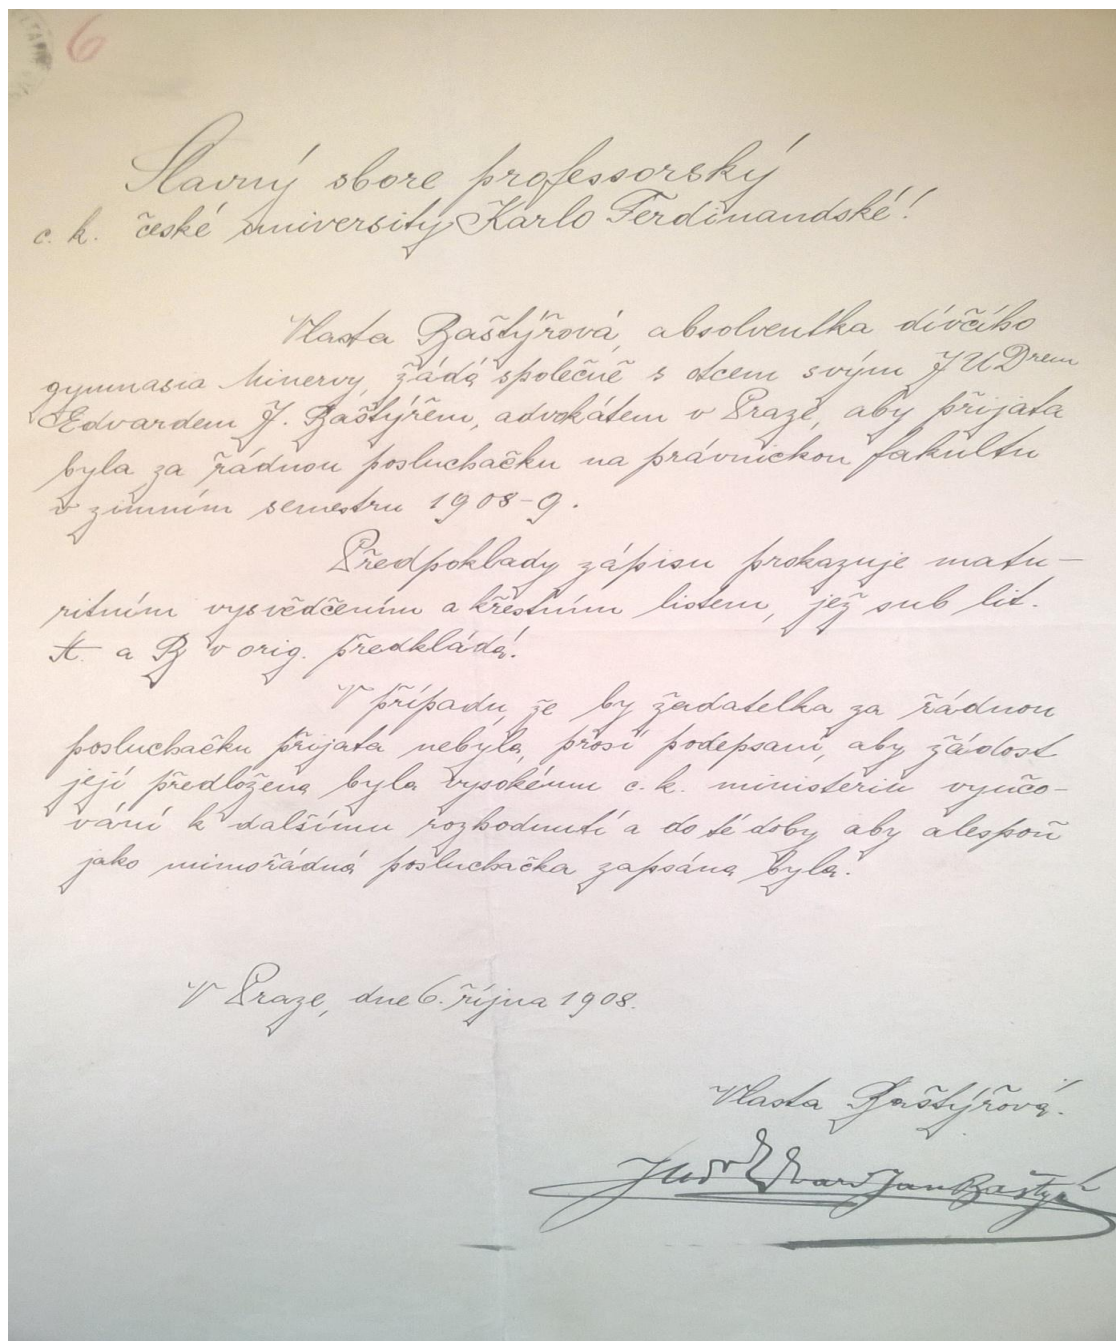 6
Slavný sbore professorský
c. k. české university Karlo Ferdinandské!
Vlasta Baštýřová, absolventka dívčího
gymnasia Minervy, žádá společně s otcem svým JUDrem
Edvardem J. Baštýřem, advokátem v Praze, aby přijata
byla za řádnou posluchačku na právnickou fakultu
v zimním semestru 1908-9.
Předpoklady zápisu prokazuje matu-
ritním vysvědčením a křestním listem, jež sub lit.
A. a B v orig. předkládá.
V případu, že by žadatelka za řádnou
posluchačku přijata nebyla, prosí podepsaní, aby žádost
její předložena byla vysokému c. k. ministeriu vyučo-
vání k dalšímu rozhodnutí a do té doby aby alespoň
jako mimořádná posluchačka zapsána byla.
V Praze, dne 6. října 1908.
Vlasta Baštýřová.
JUDr Edvard Jan Baštýř